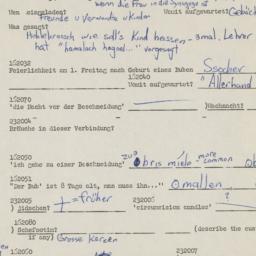 wenn die Frau in die Synagoge ist
Wen eingeladen? Womit aufgewartet? Gebäck
Freunde u Verwandte u Kinder
Was gesagt?
Holekreasch wie soll's Kind heissen - 3mal. Lehrer
hat "hamalach hagoel..." vorgesagt
1&2032
Feierlichkeit am 1. Freitag nach Geburt eines Buben Ssocher
1&2040
Womit aufgewartet? "Allerhand
1&2070
'die Nacht vor der Beschneidung' Wachnacht?
232004
Bräuche in dieser Verbindung?
1&2050
'ich gehe zu einer Beschneidung' zu bris mile more common
1&2051
"Der Bub' ist 8 Tage alt, nun muss ihn..." omallen ?
232005 232006
) Jidschen? + = früher 'circumcision candles' ?
1&2080
) Schefootin? (describe the cus
if any) Grosse Kerzen
1&2060 232007